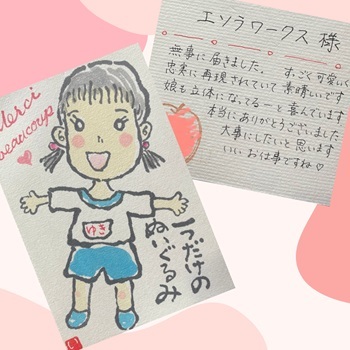 Merci
beaucoup
ゆき
一つだけの
ぬいぐるみ
い
エソラワークス 様
無事に届きました。すごく可愛いく
忠実に再現されていて素晴しいです
娘も立体になってること喜んでいます
本当にありがとうございました
大事にしたいと思います
いいお仕事ですね♡